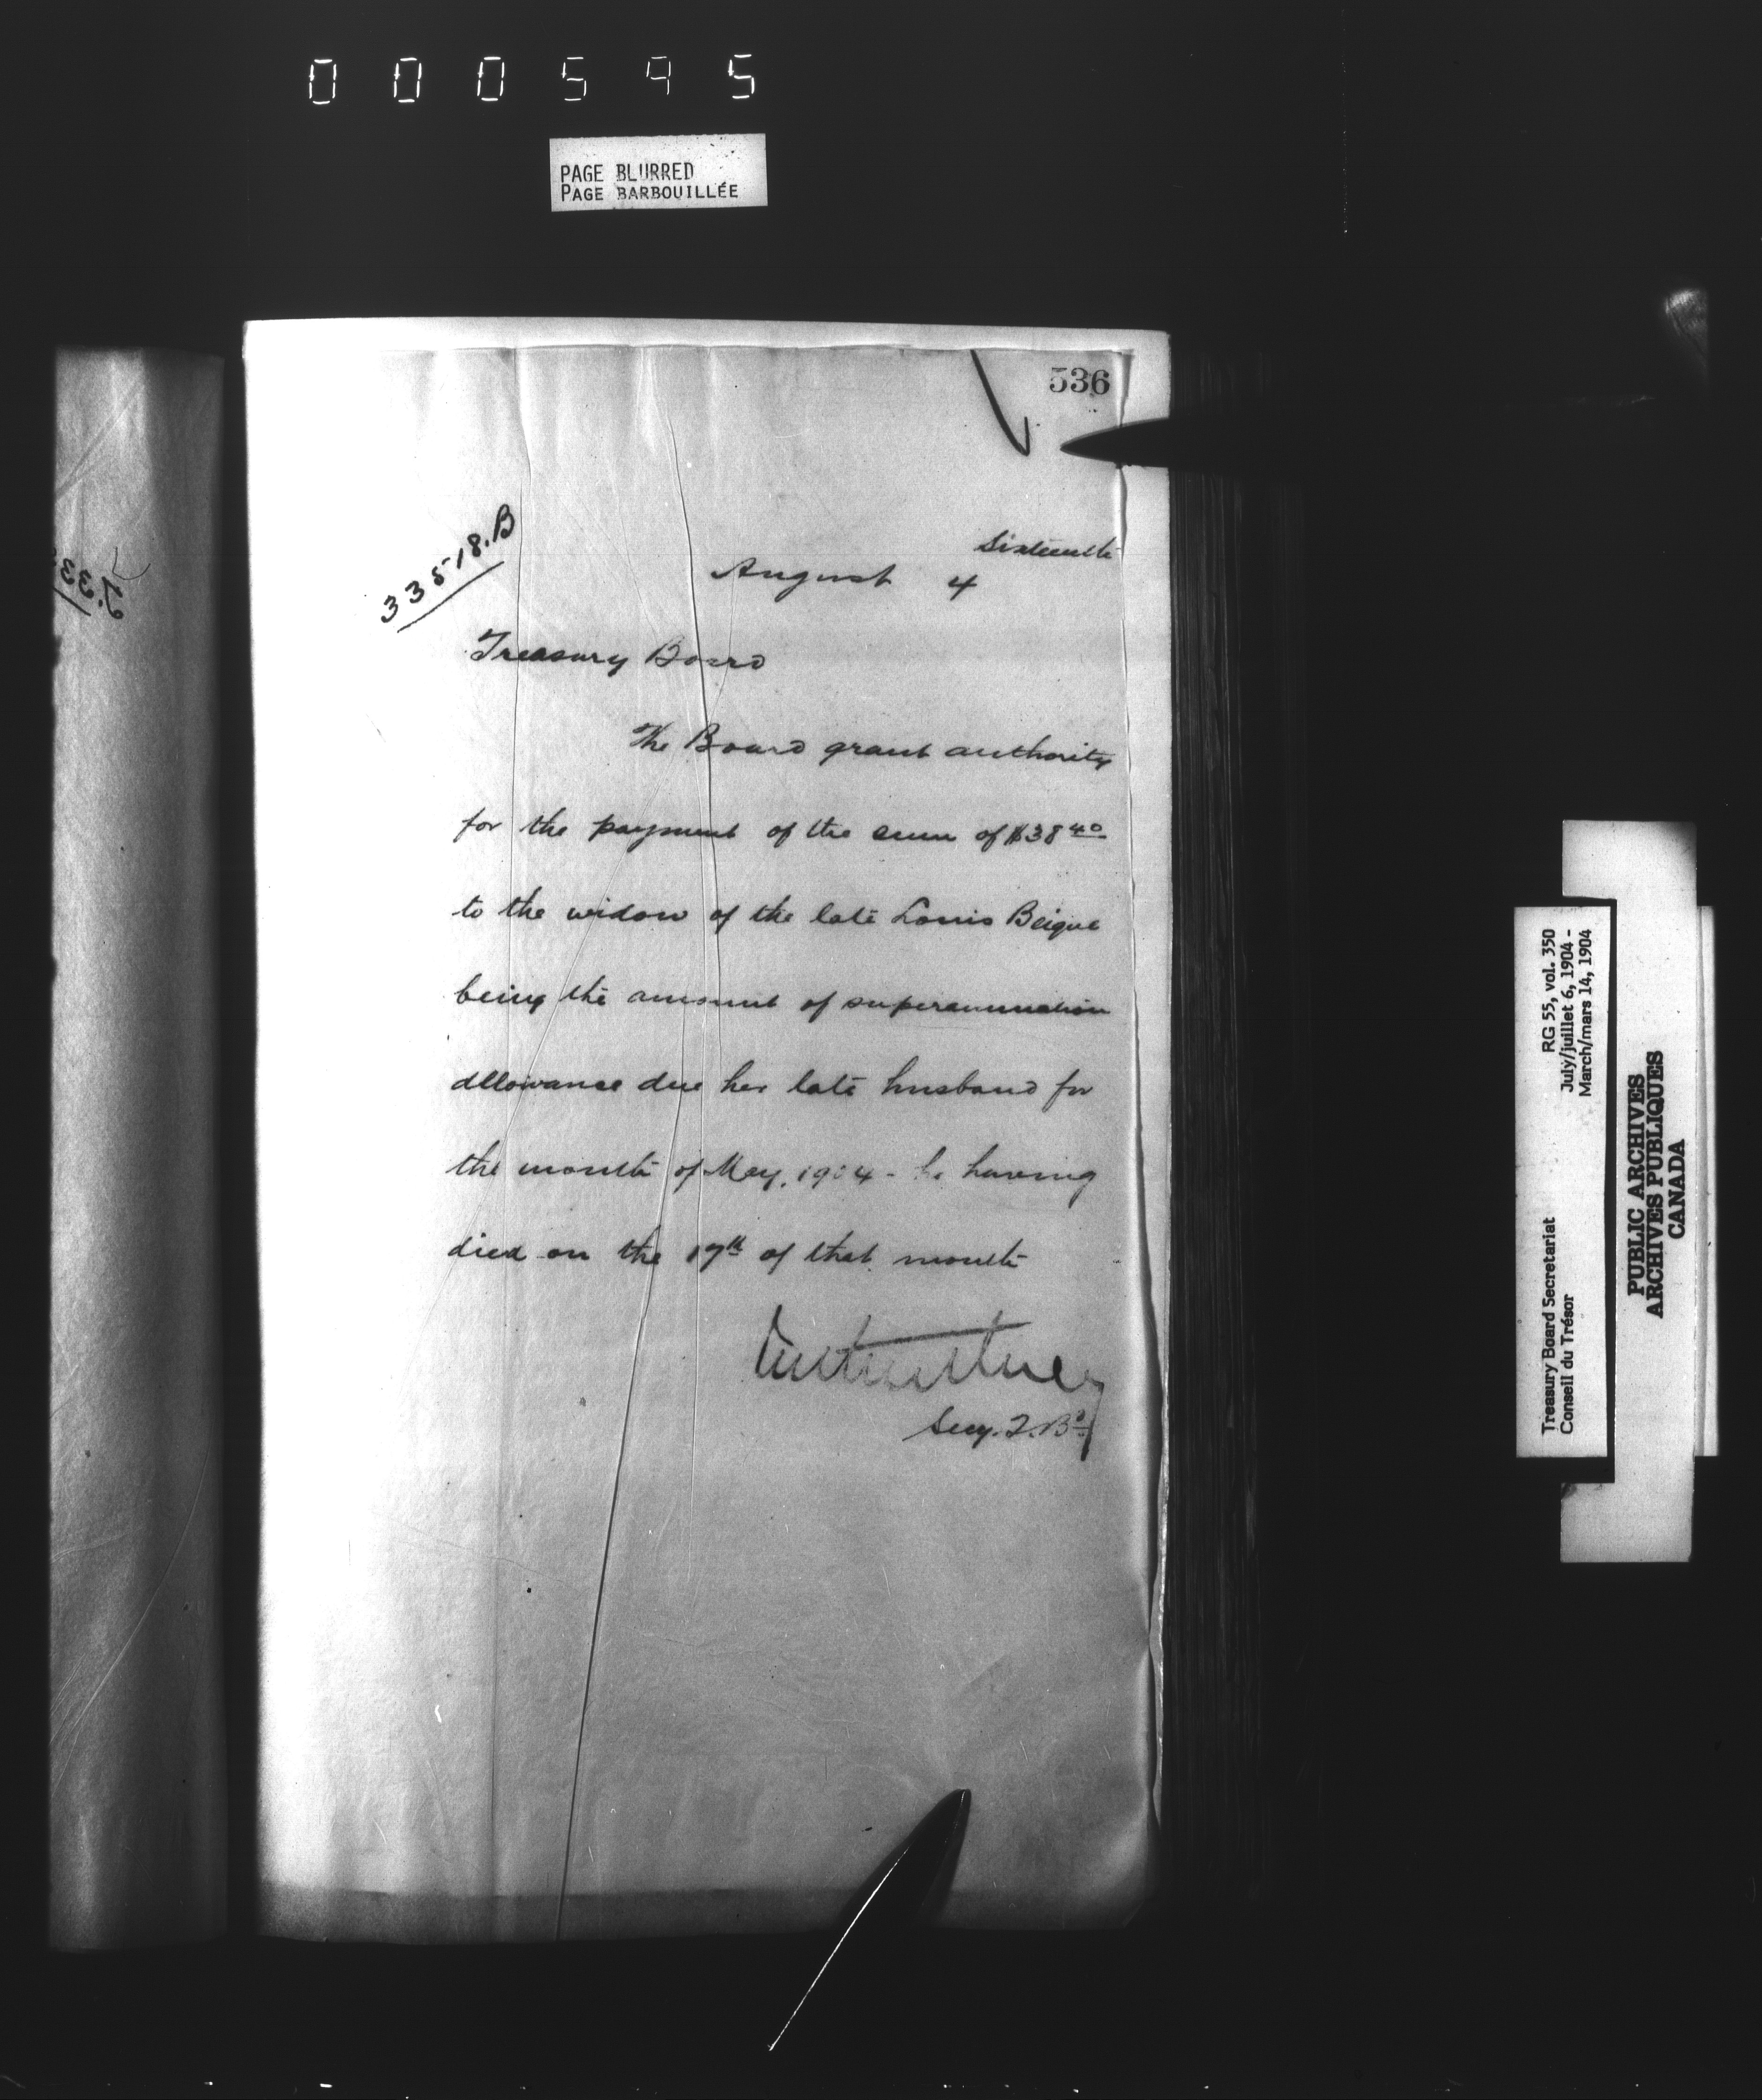 000595
PAGE BLURRED
PAGE BARBOUILLÉE
536
33518.B
Sixteenth
August 4
Treasury Board
The Board grant authority
for the payment of the sum of $38 40
to the widow of the late Louis Beique
being the amount of superannuation
allowance due her late husband for
the month of May, 1904 - he having
died on the 17th of that month
Secy. T. Bd
RG 55, vol. 350
July/juillet 6, 1904 -
March/mars 14, 1904
Treasury Board Secretariat
Conseil du Trésor
PUBLIC ARCHIVES
ARCHIVES PUBLIQUES
CANADA